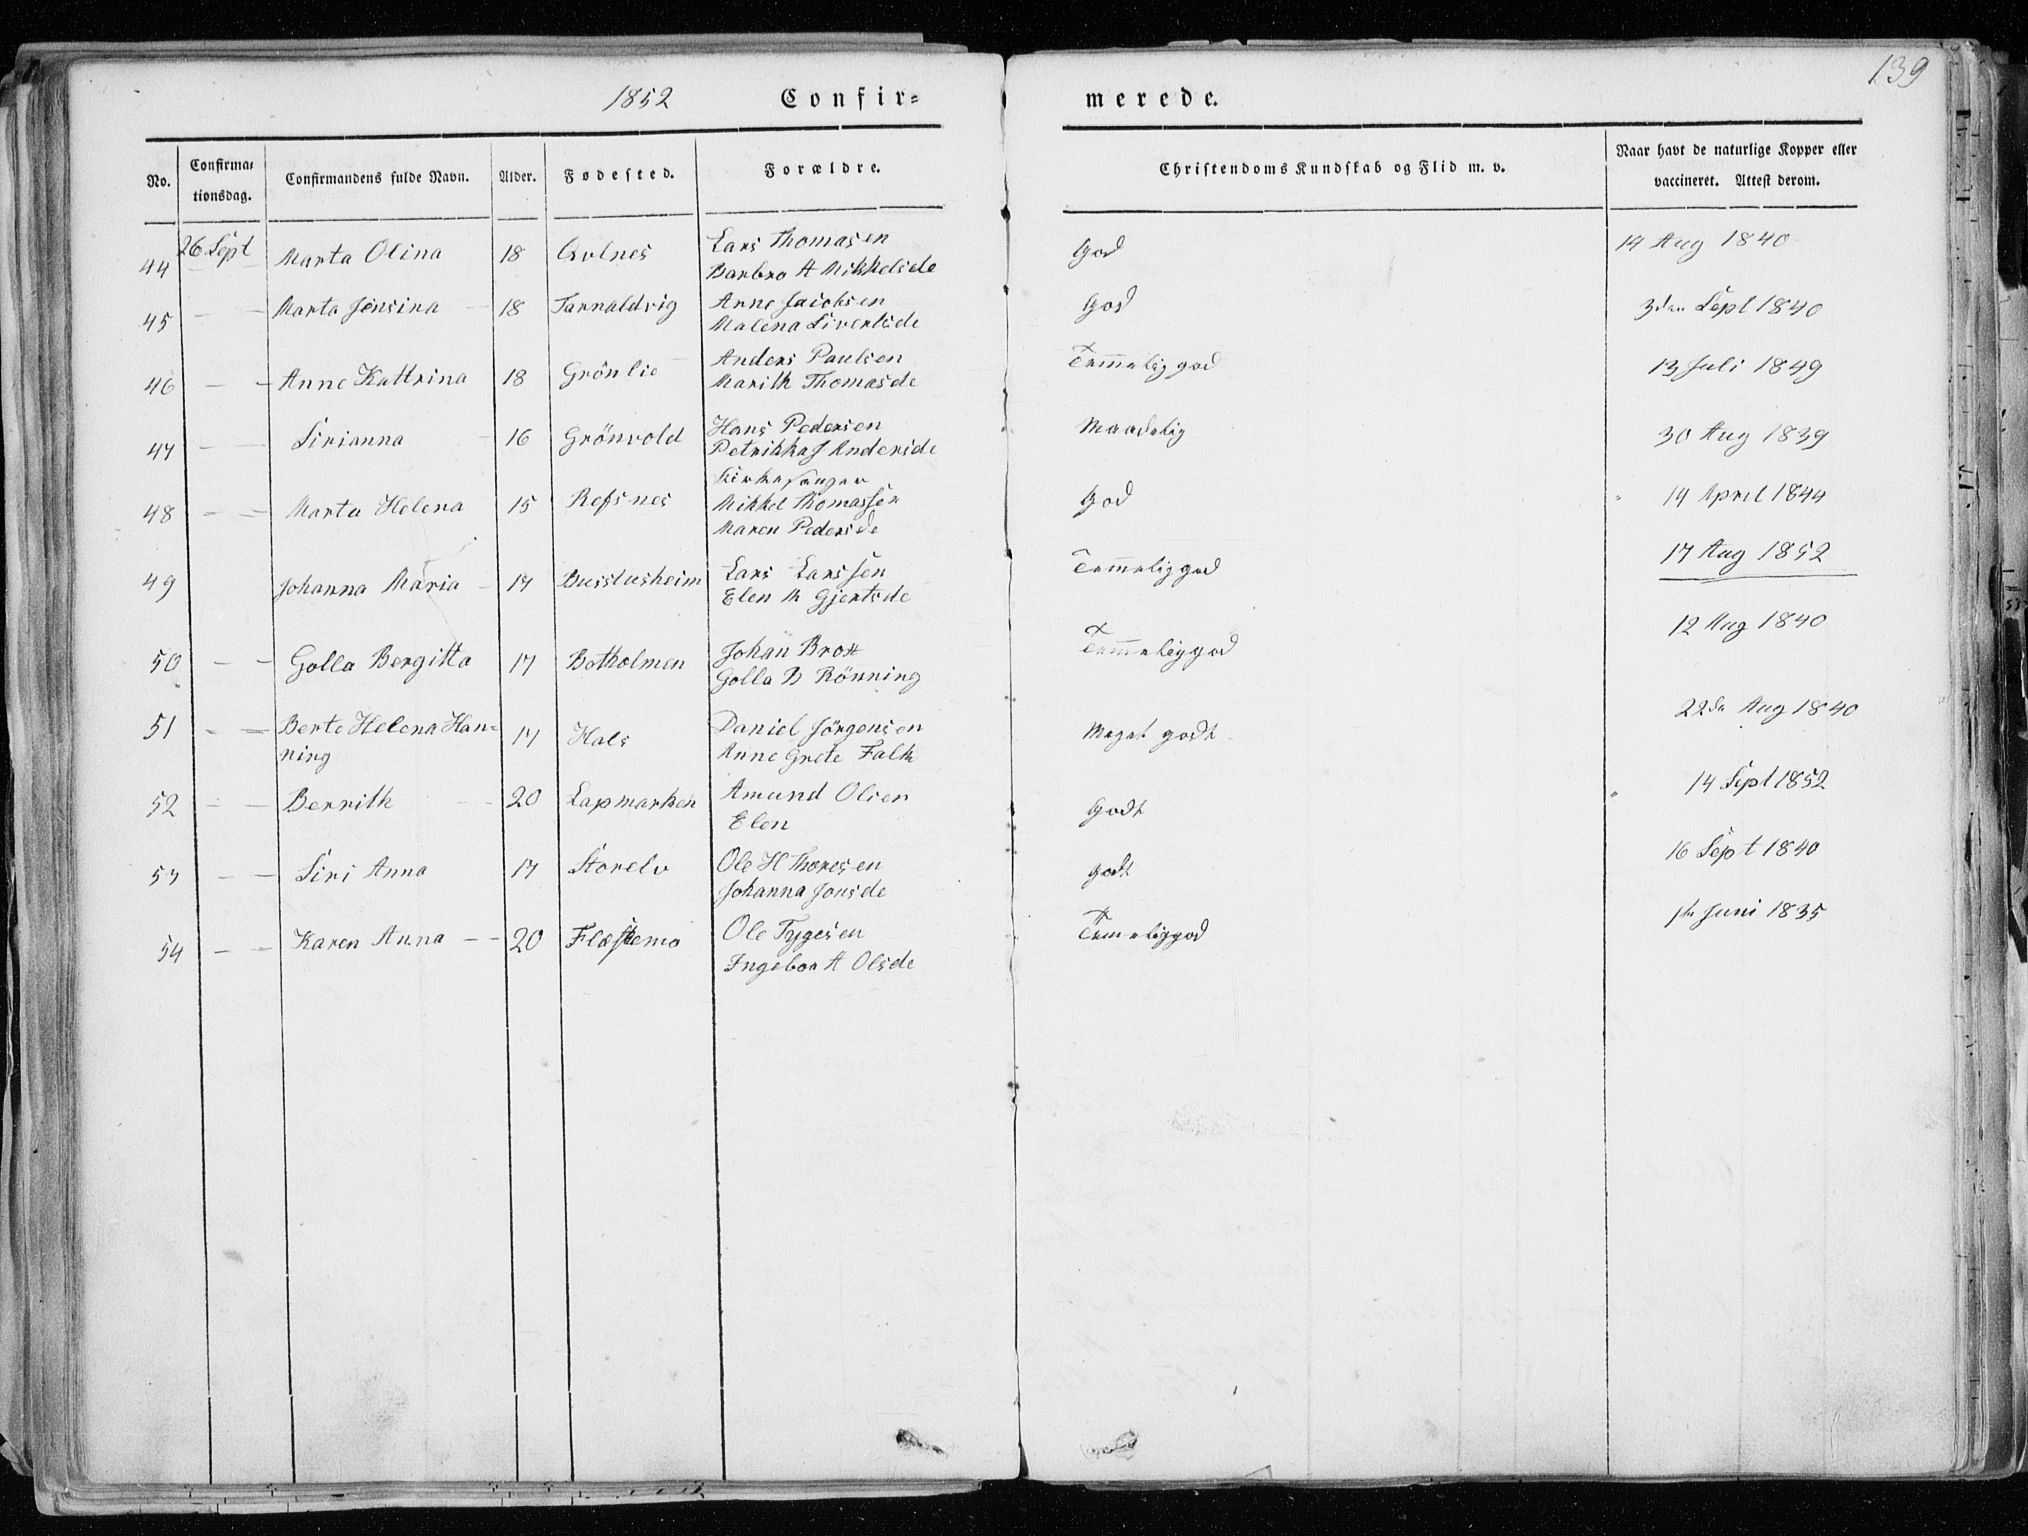 139
1852 Confir= merede.
No. Confirma= tionsdag. Confirmandens fulde Navn. Alder. Fødested. Forældre. Christendoms Kundskab og Flid m. v. Naar havt de naturlige Kopper eller vaccineret. Attest derom.
44 26 Sept Marta Olina 18 Qvlnes Lars Thomasen God 14 Aug 1840
Barbro A Mikkelsde
45 — — Marta Jensina 18 Tarnaldvig Arne Jacobsen God 3den Sept 1840
Malena Sivertsde
46 — — Anne Kattrina 18 Grönlie Anders Paulsen Temmelig god 13 Juli 1849
Marith Thomasde
47 — — Sirianna 16 Grönvold Hans Pedersen Maadelig 30 Aug 1839
Petrikka J Andersde
Kirkesanger
48 — — Marta Helena 15 Refsnes Mikkel Thomassen God 14 April 1844
Maren Pedersde
49 Johanna Maria 17 Busslusheim Lars Larssen Temmelig god 17 Aug 1852
Elen M Gjertsde
50 — — Golla Bergitta 17 Botholmen Johan Brox Temmelig god 12 Aug 1840
Golla B Rönning
51 — — Berte Helena Han= 17 Hals Daniel Jörgensen Meget godt 22de Aug 1840
ning Anne Grete Falk
52 — — Berrith 20 Lapmarken Amund Olsen Godt 14 Sept 1852
Elen
53 — — Siri Anna 17 Storelv Ole H Thoresen godt 16 Sept 1840
Johanna Jonsde
54 — — Karen Anna 20 Flæstemo Ole Tygesen Temelig god Juni 1835
Ingebor A Olsde